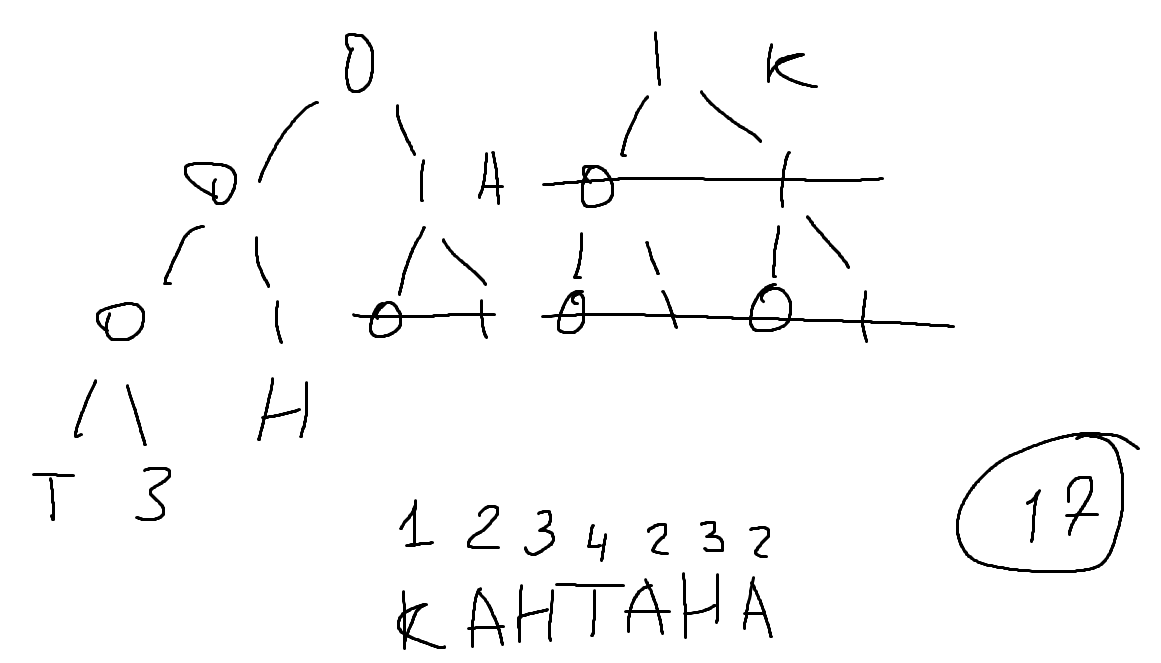 0 1 K
0 1 A 0 1
0 1 0 1 0 1 0 1
H
Т З
17
1 2 3 4 2 3 2
КАНТАНА